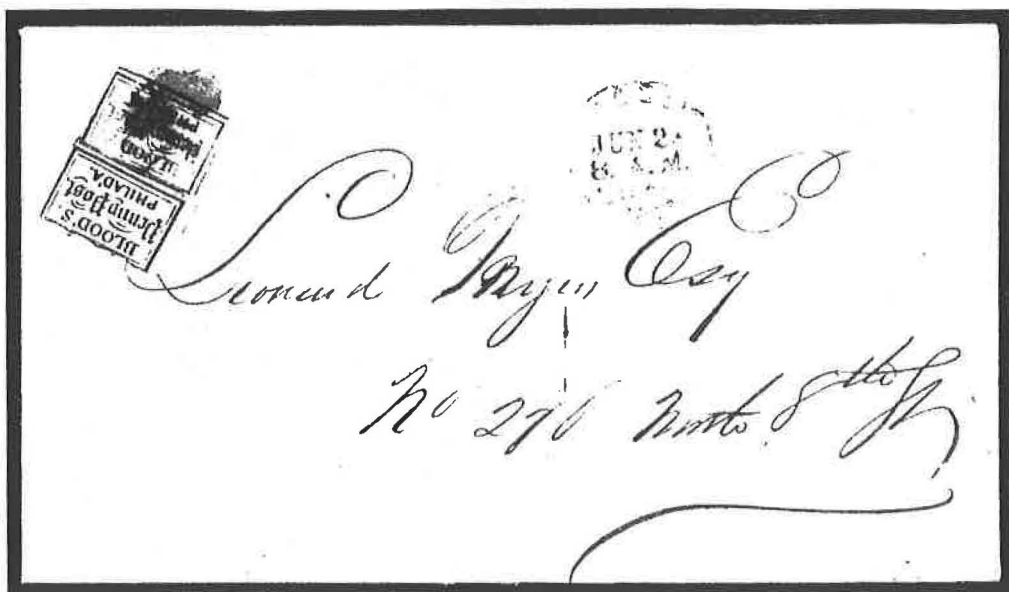 BLOOD'S
Penny Post
PHILAD'A.
BLOOD'S
Penny Post
JUN 2
8 A.M.
Leonard Myers Esq
No 276 North 8th St